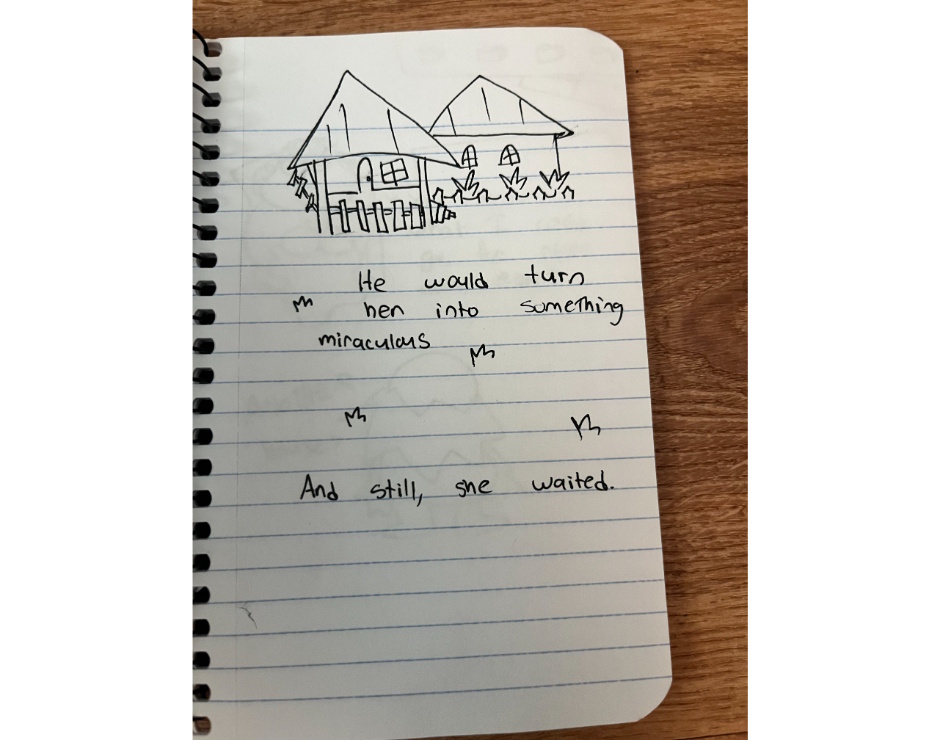 He would turn
her into something
miraculous
And still, she waited.